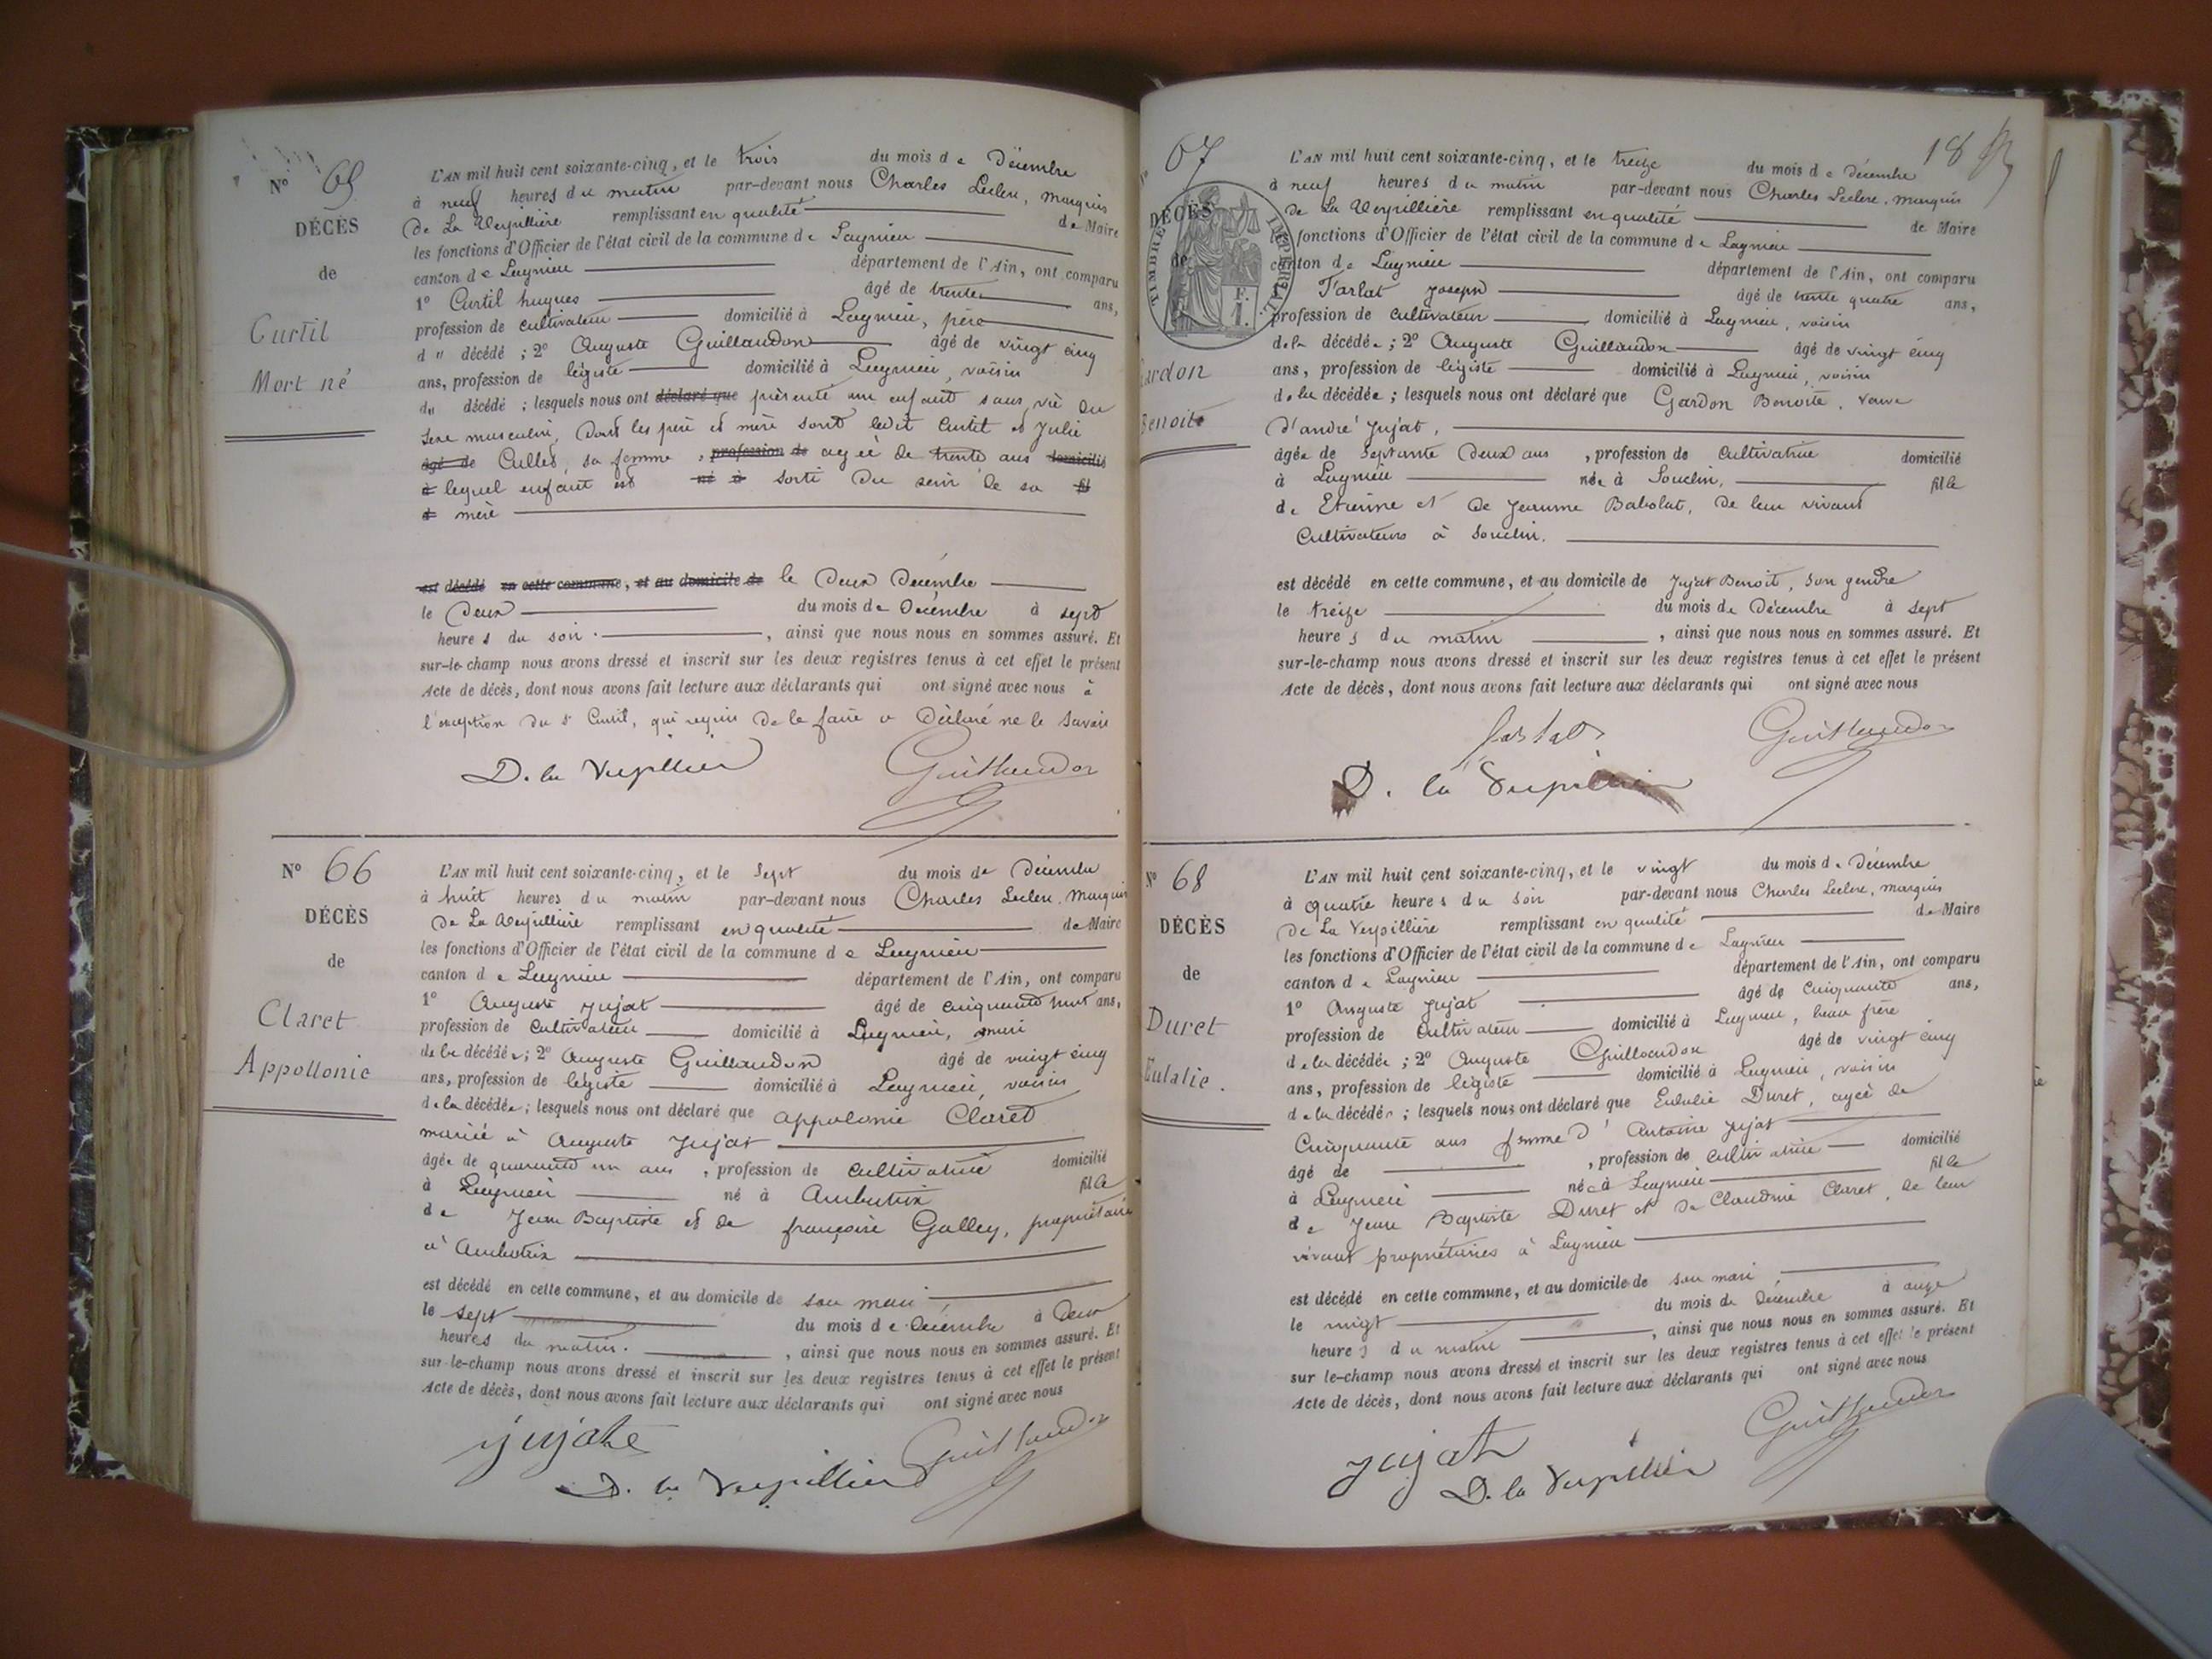 N° 65
DÉCÈS
de
Curtil
Mort né
L'AN mil huit cent soixante-cinq, et le trois du mois de Décembre
à neuf heures du matin par-devant nous Charles Leclerc, marquis
De La Verpillière remplissant en qualité de Maire
les fonctions d'Officier de l'état civil de la commune de Lagnieu
canton de Lagnieu département de l'Ain, ont comparu
1° Curtil hugues âgé de trente ans,
profession de cultivateur domicilié à Lagnieu, père
d u décédé ; 2° Auguste Guillaudon âgé de vingt cinq
ans, profession de légiste domicilié à Lagnieu, voisin
du décédé ; lesquels nous ont déclaré que présenté un enfant sans vie du
sexe masculin, dont les père et mère sont ledit Curtil et Julie
âgé de Cullet, sa femme , profession de agée de trente ans domicilié
à lequel enfant est né à sorti du sein de sa fil
d mère
est décédé en cette commune, et au domicile de le Deux Décembre
le Deux du mois de Décembre à sept
heures du soir. , ainsi que nous nous en sommes assuré. Et
sur-le-champ nous avons dressé et inscrit sur les deux registres tenus à cet effet le présent
Acte de décès, dont nous avons fait lecture aux déclarants qui ont signé avec nous à
l'exception du s. Curtil, qui requis de le faire a déclaré ne le savoir
D. la Verpillier Guillaudon
N° 66
DÉCÈS
de
Claret
Appollonie
L'AN mil huit cent soixante-cinq, et le Sept du mois de Décembre
à huit heures du matin par-devant nous Charles Leclerc, Marquis
De La Verpillière remplissant en qualité de Maire
les fonctions d'Officier de l'état civil de la commune de Lagnieu
canton de Lagnieu département de l'Ain, ont comparu
1° Auguste Jujat âgé de cinquante huit ans,
profession de Cultivateur domicilié à Lagnieu, mari
de la décédée ; 2° Auguste Guillaudon âgé de vingt cinq
ans, profession de légiste domicilié à Lagnieu, voisin
de la décédée ; lesquels nous ont déclaré que appolonie Claret
mariée à Auguste Jujat
âgée de quarante un ans , profession de cultivatrice domicilié
à Lagnieu né à Ambutrix fille
de Jean Baptiste et de françoise Galley, propriétaire
à Ambutrix
est décédé en cette commune, et au domicile de son mari
le sept du mois de Décembre à Deux
heures du matin. , ainsi que nous nous en sommes assuré. Et
sur-le-champ nous avons dressé et inscrit sur les deux registres tenus à cet effet le présent
Acte de décès, dont nous avons fait lecture aux déclarants qui ont signé avec nous
jujate D. la Verpillier Guillaudon
18
N° 67
DÉCÈS
de
TIMBRE IMPÉRIAL
F.
1.
Gardon
Benoite
L'AN mil huit cent soixante-cinq, et le treize du mois de Décembre
à neuf heures du matin par-devant nous Charles Leclerc, marquis
de La Verpillière remplissant en qualité de Maire
les fonctions d'Officier de l'état civil de la commune de Lagnieu
canton de Lagnieu département de l'Ain, ont comparu
Tarlat Joseph âgé de trente quatre ans,
profession de Cultivateur domicilié à Lagnieu, voisin
de la décédée ; 2° Auguste Guillaudon âgé de vingt cinq
ans, profession de légiste domicilié à Lagnieu, voisin
de la décédée ; lesquels nous ont déclaré que Gardon Benoite, veuve
d'andré Jujat,
âgée de Septante Deux ans , profession de Cultivatrice domicilié
à Lagnieu née à Souclin, fille
de Etienne et de Jeanne Babolat, de leur vivant
Cultivateurs à Souclin.
est décédé en cette commune, et au domicile de Jujat Benoit, son gendre
le treize du mois de Décembre à sept
heures du matin , ainsi que nous nous en sommes assuré. Et
sur-le-champ nous avons dressé et inscrit sur les deux registres tenus à cet effet le présent
Acte de décès, dont nous avons fait lecture aux déclarants qui ont signé avec nous
D. la Verpillier Guillaudon
N° 68
DÉCÈS
de
Duret
Eulalie.
L'AN mil huit cent soixante-cinq, et le vingt du mois de Décembre
à quatre heures du soir par-devant nous Charles Leclerc, marquis
De La Verpillière remplissant en qualité de Maire
les fonctions d'Officier de l'état civil de la commune de Lagnieu
canton de Lagnieu département de l'Ain, ont comparu
1° Auguste Jujat âgé de Cinquante ans,
profession de Cultivateur domicilié à Lagnieu, beau frère
de la décédée ; 2° Auguste Guillaudon âgé de vingt cinq
ans, profession de légiste domicilié à Lagnieu, voisin
de la décédée ; lesquels nous ont déclaré que Eulalie Duret, agée de
Cinquante ans femme d'Antoine Jujat
âgé de , profession de cultivatrice domicilié
à Lagnieu née à Lagnieu fille
de Jean Baptiste Duret et de Claudine Claret, de leur
vivant propriétaires à Lagnieu
est décédé en cette commune, et au domicile de son mari
le vingt du mois de Décembre à onze
heures du matin , ainsi que nous nous en sommes assuré. Et
sur le-champ nous avons dressé et inscrit sur les deux registres tenus à cet effet le présent
Acte de décès, dont nous avons fait lecture aux déclarants qui ont signé avec nous
Jujat D. la Verpillier Guillaudon